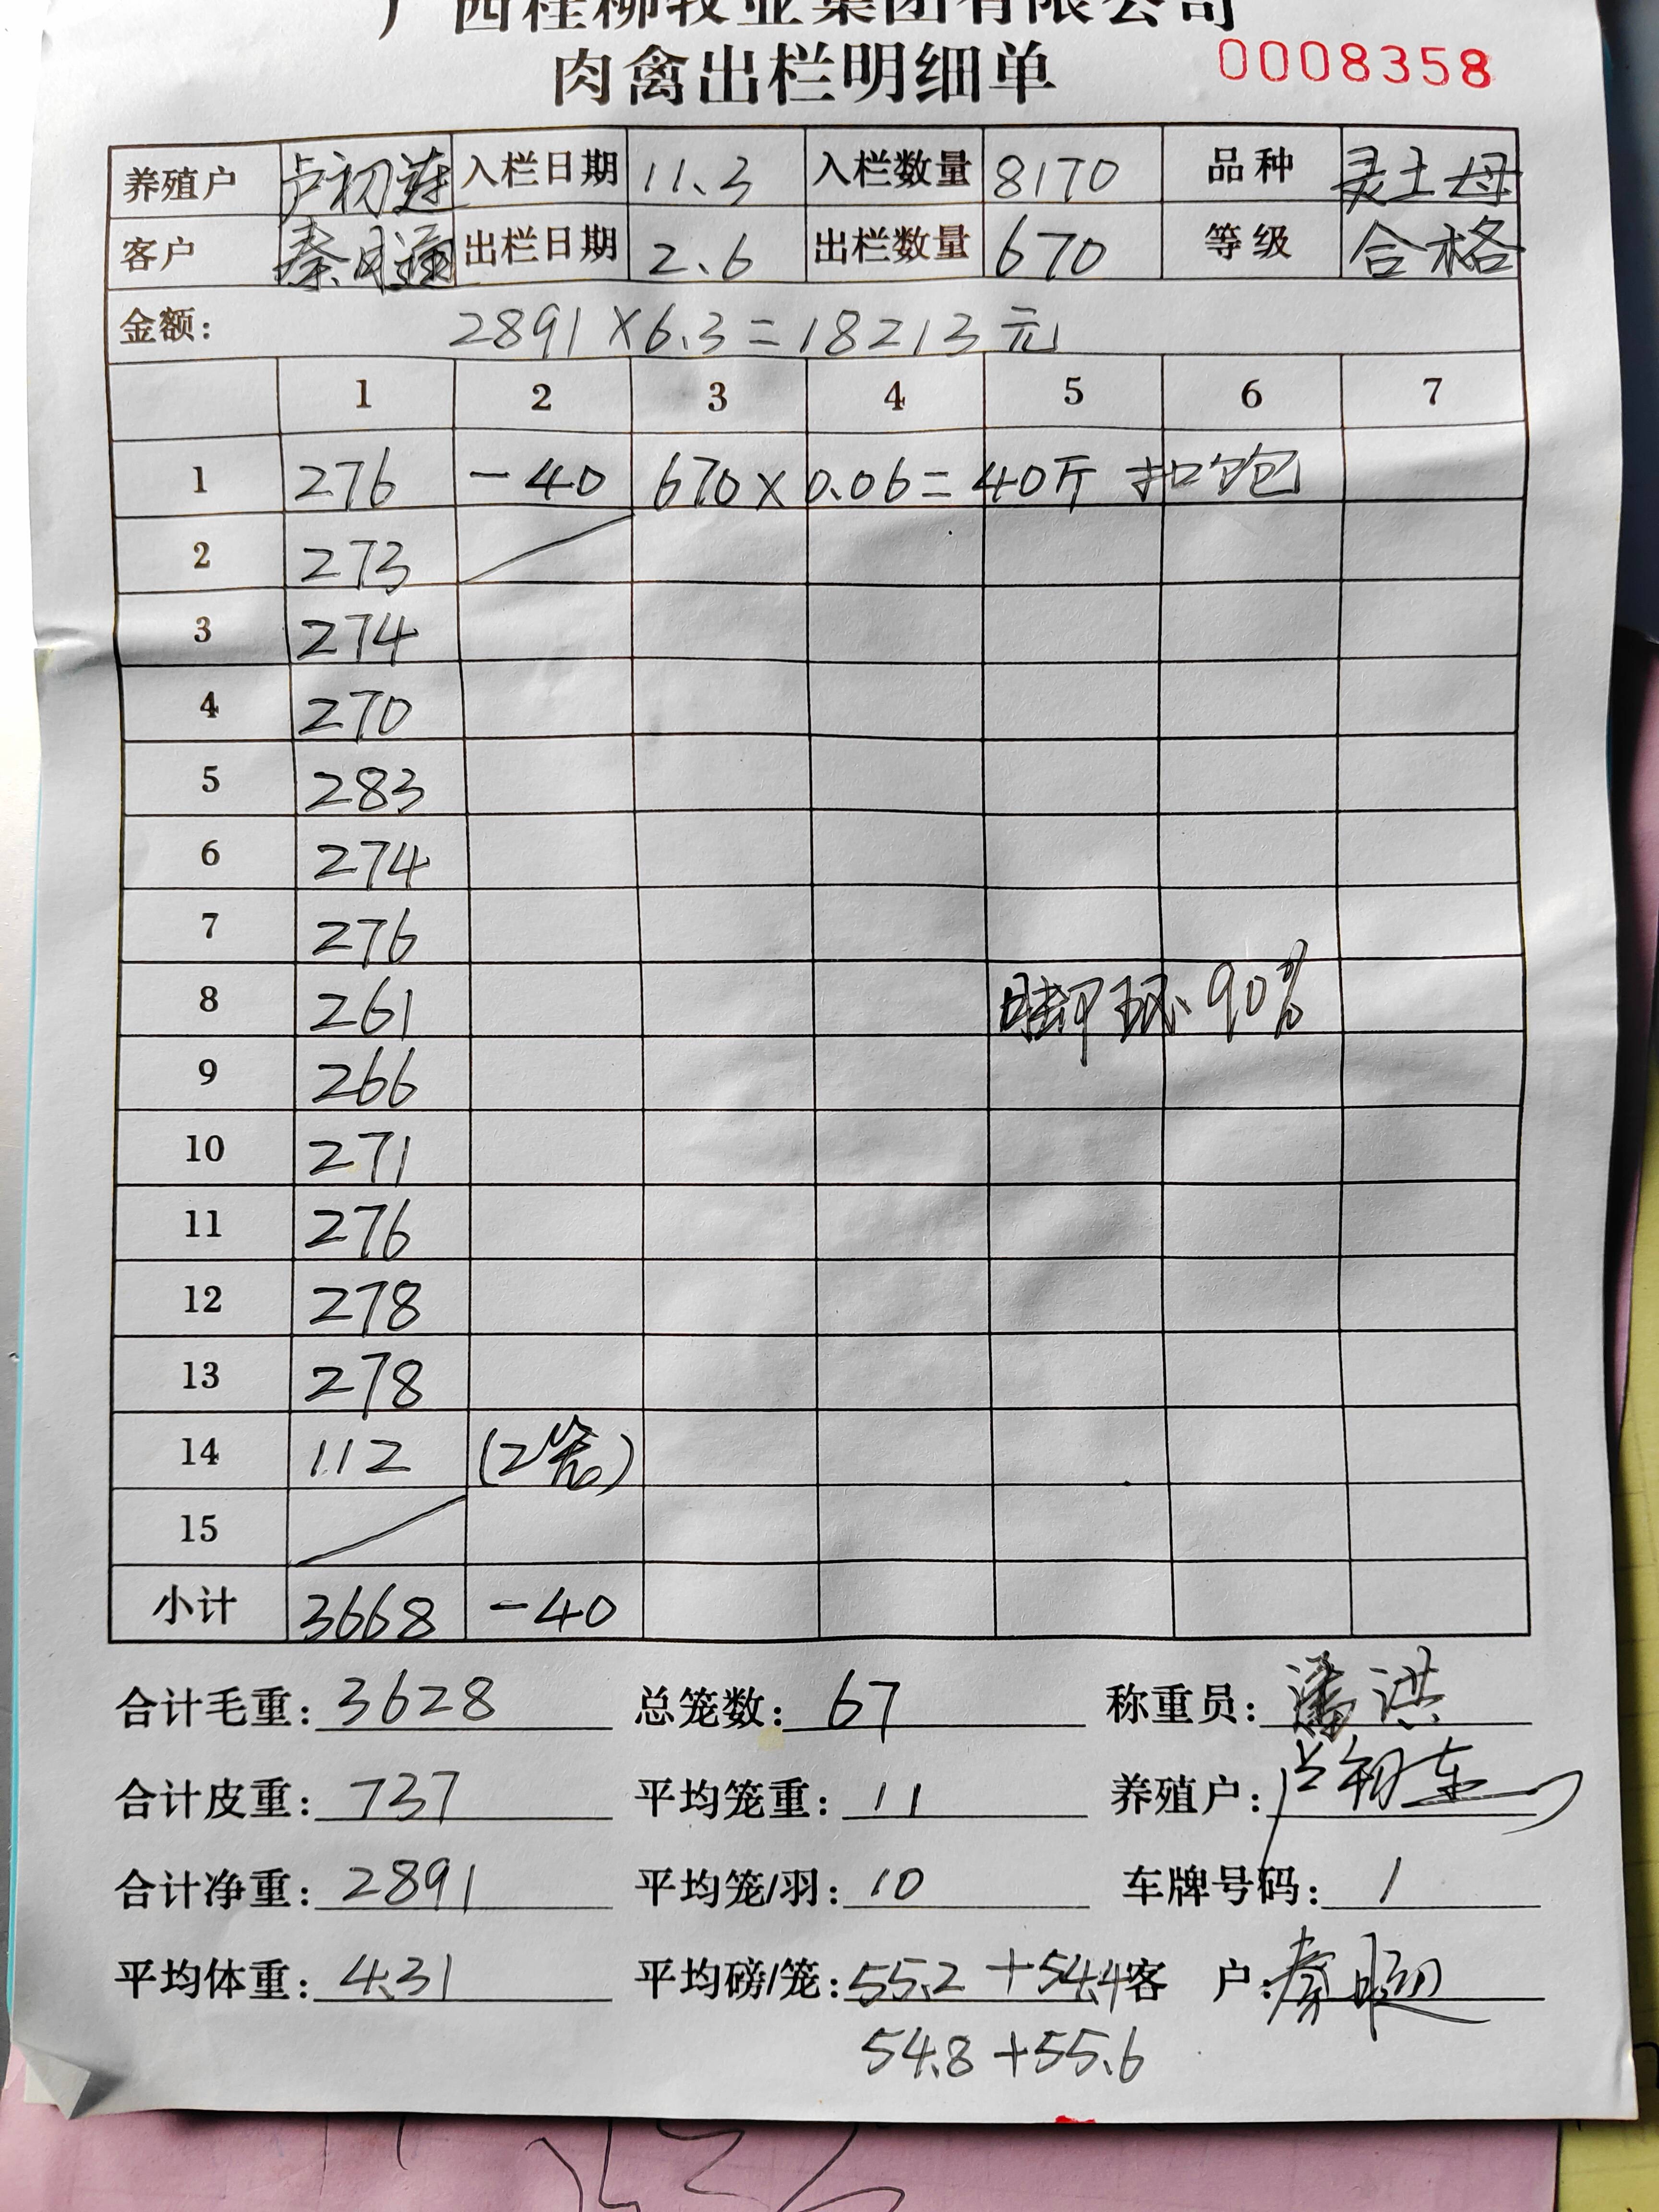 广西桂柳牧业集团有限公司
肉禽出栏明细单 0008358
养殖户 卢初莲 入栏日期 11.3 入栏数量 8170 品种 灵土母
客户 秦 出栏日期 2.6 出栏数量 670 等级 合格
金额: 2891×6.3=18213元
1 2 3 4 5 6 7
1 276 -40 670×0.06=40斤 扣饱
2 273
3 274
4 270
5 283
6 274
7 276
8 261 脚环90%
9 266
10 271
11 276
12 278
13 278
14 112 (2笼)
15
小计 3668 -40
合计毛重: 3628 总笼数: 67 称重员: 潘洪
合计皮重: 737 平均笼重: 11 养殖户:
合计净重: 2891 平均笼/羽: 10 车牌号码: 1
平均体重: 4.31 平均磅/笼: 55.2+54.4 客 户: 秦
54.8+55.6